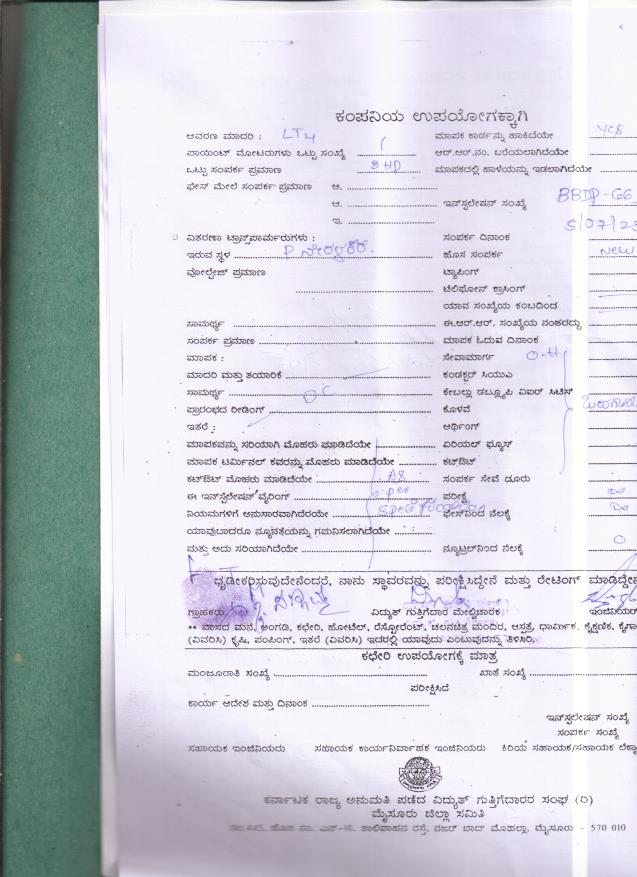 ಕಂಪನಿಯ ಉಪಯೋಗಕ್ಕಾಗಿ
ಆವರಣ ಮಾದರಿ : LT4 ಮಾಪಕ ಕಾರ್ಡನ್ನು ಹಾಕಿದೆಯೇ Yes
ಪಾಯಿಂಟ್ ಮೋಟರುಗಳು ಒಟ್ಟು ಸಂಖ್ಯೆ 1 ಆರ್.ಆರ್.ನಂ. ಬರೆಯಲಾಗಿದೆಯೇ
ಒಟ್ಟು ಸಂಪರ್ಕ ಪ್ರಮಾಣ HP ಮಾಪಕದಲ್ಲಿ ಹಾಳೆಯನ್ನು ಇಡಲಾಗಿದೆಯೇ
ಫೇಸ್ ಮೇಲೆ ಸಂಪರ್ಕ ಪ್ರಮಾಣ ಅ.
ಆ. ಇನ್‌ಸ್ಟಲೇಷನ್ ಸಂಖ್ಯೆ BBDP-66
ಇ. 5/07/23
ವಿತರಣಾ ಟ್ರಾನ್ಸ್‌ಫಾರ್ಮರುಗಳು : ಸಂಪರ್ಕ ದಿನಾಂಕ
ಇರುವ ಸ್ಥಳ ಹೊಸ ಸಂಪರ್ಕ New
ವೋಲ್ಟೇಜ್ ಪ್ರಮಾಣ ಟ್ಯಾಪಿಂಗ್
ಟೆಲಿಫೋನ್ ಕ್ರಾಸಿಂಗ್
ಯಾವ ಸಂಖ್ಯೆಯ ಕಂಬದಿಂದ
ಸಾಮರ್ಥ್ಯ ಈ.ಆರ್.ಆರ್. ಸಂಖ್ಯೆಯ ನಂತರದ್ದು
ಸಂಪರ್ಕ ಪ್ರಮಾಣ ಮಾಪಕ ಓದುವ ದಿನಾಂಕ
ಮಾಪಕ : ಸೇವಾಮಾರ್ಗ O.H
ಮಾದರಿ ಮತ್ತು ತಯಾರಿಕೆ ಕಂಡಕ್ಟರ್ ಸಿಯುಎ
ಸಾಮರ್ಥ್ಯ ಕೇಬಲ್ಲು ಡಬ್ಲ್ಯೂಪಿ ಏಐರ್ ಸಿಟಿಸ್
ಪ್ರಾರಂಭದ ರೀಡಿಂಗ್ ಕೊಳವೆ
ಇತರೆ : ಅರ್ಥಿಂಗ್
ಮಾಪಕವನ್ನು ಸರಿಯಾಗಿ ಮೊಹರು ಮಾಡಿದೆಯೇ ಏರಿಯಲ್ ಫ್ಯೂಸ್
ಮಾಪಕ ಟರ್ಮಿನಲ್ ಕವರನ್ನು ಮೊಹರು ಮಾಡಿದೆಯೇ ಕಟ್‌ಔಟ್
ಕಟ್‌ಔಟ್ ಮೊಹರು ಮಾಡಿದೆಯೇ As ಸಂಪರ್ಕ ಸೇವೆ ದೂರು
ಈ ಇನ್‌ಸ್ಟಲೇಷನ್ ವೈರಿಂಗ್ per ಪರೀಕ್ಷೆ ∞
ನಿಯಮಗಳಿಗೆ ಅನುಸಾರವಾಗಿದೆಯೇ ಫೇಸ್‌ನಿಂದ ನೆಲಕ್ಕೆ ∞
ಯಾವುದಾದರೂ ನ್ಯೂನತೆಯನ್ನು ಗಮನಿಸಲಾಗಿದೆಯೇ
ಮತ್ತು ಅದು ಸರಿಯಾಗಿದೆಯೇ ನ್ಯೂಟ್ರಲ್‌ನಿಂದ ನೆಲಕ್ಕೆ 0
ಧೃಡೀಕರಿಸುವುದೇನೆಂದರೆ, ನಾನು ಸ್ಥಾವರವನ್ನು ಪರೀಕ್ಷಿಸಿದ್ದೇನೆ ಮತ್ತು ರೇಟಿಂಗ್ ಮಾಡಿದ್ದೇನೆ
ಗ್ರಾಹಕರು ವಿದ್ಯುತ್ ಗುತ್ತಿಗೆದಾರ ಮೇಲ್ವಿಚಾರಕ ಇಂಜಿನಿಯರ್
** ವಾಸದ ಮನೆ, ಅಂಗಡಿ, ಕಛೇರಿ, ಹೋಟೆಲ್, ರೆಸ್ಟೋರೆಂಟ್, ಚಲನಚಿತ್ರ ಮಂದಿರ, ಆಸ್ಪತ್ರೆ, ಧಾರ್ಮಿಕ, ಶೈಕ್ಷಣಿಕ, ಕೈಗಾ
(ವಿವರಿಸಿ) ಕೃಷಿ, ಪಂಪಿಂಗ್, ಇತರೆ (ವಿವರಿಸಿ) ಇದರಲ್ಲಿ ಯಾವುದು ಎಂಬುವುದನ್ನು ತಿಳಿಸಿರಿ.
ಕಛೇರಿ ಉಪಯೋಗಕ್ಕೆ ಮಾತ್ರ
ಮಂಜೂರಾತಿ ಸಂಖ್ಯೆ ಖಾತೆ ಸಂಖ್ಯೆ
ಪರೀಕ್ಷಿಸಿದೆ
ಕಾರ್ಯ ಆದೇಶ ಮತ್ತು ದಿನಾಂಕ
ಇನ್‌ಸ್ಟಲೇಷನ್ ಸಂಖ್ಯೆ
ಸಂಪರ್ಕ ಸಂಖ್ಯೆ
ಸಹಾಯಕ ಇಂಜಿನಿಯರು ಸಹಾಯಕ ಕಾರ್ಯನಿರ್ವಾಹಕ ಇಂಜಿನಿಯರು ಕಿರಿಯ ಸಹಾಯಕ/ಸಹಾಯಕ ಲೆಕ್ಕಾ
ಕರ್ನಾಟಕ ರಾಜ್ಯ ಅನುಮತಿ ಪಡೆದ ವಿದ್ಯುತ್ ಗುತ್ತಿಗೆದಾರರ ಸಂಘ (ರಿ)
ಮೈಸೂರು ಜಿಲ್ಲಾ ಸಮಿತಿ
ಶಾಲಿವಾಹನ ರಸ್ತೆ, ನಜರ್ ಬಾದ್ ಮೊಹಲ್ಲಾ, ಮೈಸೂರು - 570 010